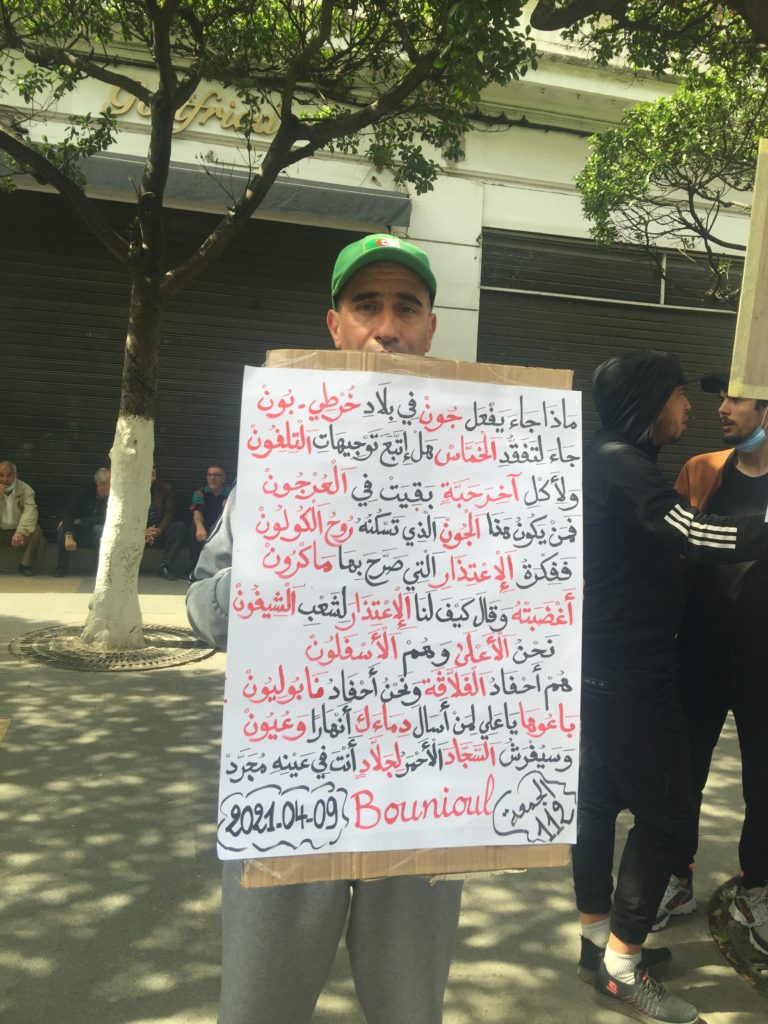 ماذا جاءَ يَفْعَل جُونْ في بِلَادِ خُرْطِي-بُونْ
جاء لتَفَقُّدِ الْخَمَّاسْ هل إتّبَع تَوْجِيهَات الْتِلِفُونْ
ولأكْل آخر حَبَّة بَقِيَت في الْعُرْجُونْ
فمنْ يكُونُ هذا الجُونْ الذي تسْكنه رُوحُ الْكُولُونْ
ففِكرَة الإِعْتِذَارْ التي صَرّح بها مَاكْرُونْ
أغْضبَتْهُ وقَال كيْف لنَا الإِعْتِذَارْ لشَعْب الْشِيفُونْ
نَحْنُ الأَعْلَى وهُمْ الْأَسْفَلُونْ
هُم أحْفَاد الْفَلَّاقَة ونَحْنُ أحْفَاد نَابُولْيُونْ
بَاعُوهَا يا علي لمَن أسَال دمَاءَك أنْهارًا وعُيُونْ
وَسَيُفْرَش السَّجَّاد الأَحْمَر لجلَّادٍ أنْتَ في عَيْنِهِ مُجَرّدْ
2021-04-09 Bounioul الجمعة 112